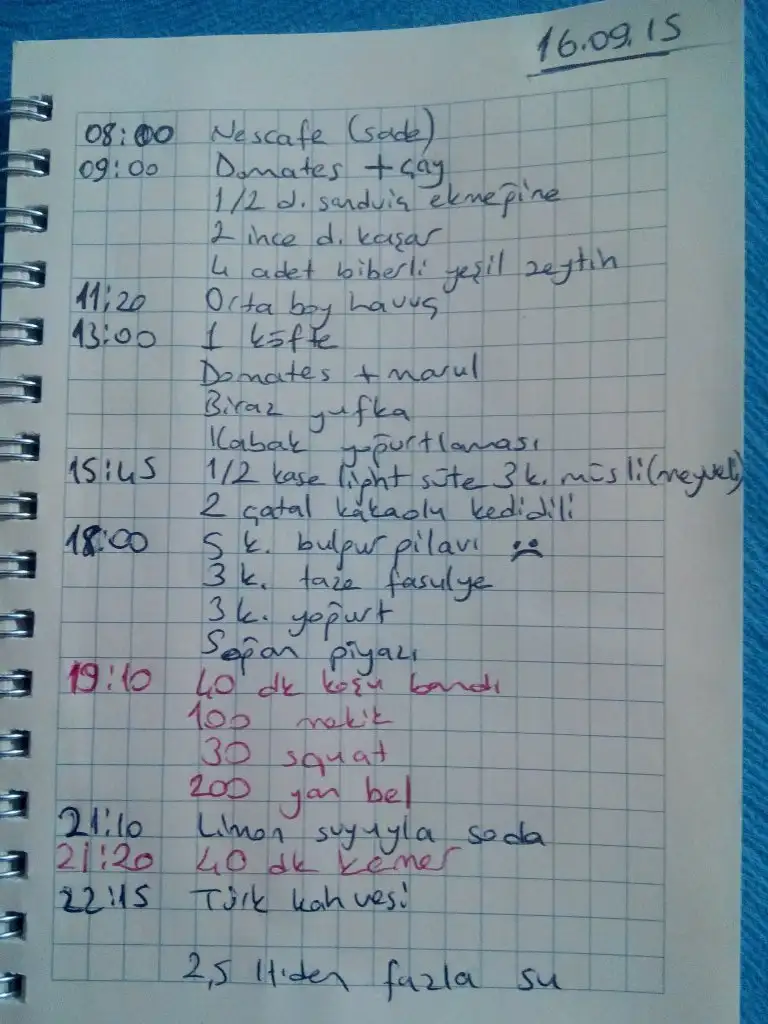 16.09.15
08:00 Nescafe (sade)
09:00 Domates + çay
1/2 d. sandviç ekmeğine
2 ince d. kaşar
4 adet biberli yeşil zeytin
11:20 Orta boy havuç
13:00 1 köfte
Domates + marul
Biraz yufka
Kabak yoğurtlaması
15:45 1/2 kase light süte 3 k. müsli (meyveli)
2 çatal kakaolu kedidili
18:00 5 k. bulgur pilavı :(
3 k. taze fasulye
3 k. yoğurt
Soğan piyazı
19:10 40 dk koşu bandı
100 mekik
30 squat
200 yan bel
21:10 Limon suyuyla soda
21:20 40 dk kemer
22:15 Türk kahvesi
2,5 lt.den fazla su